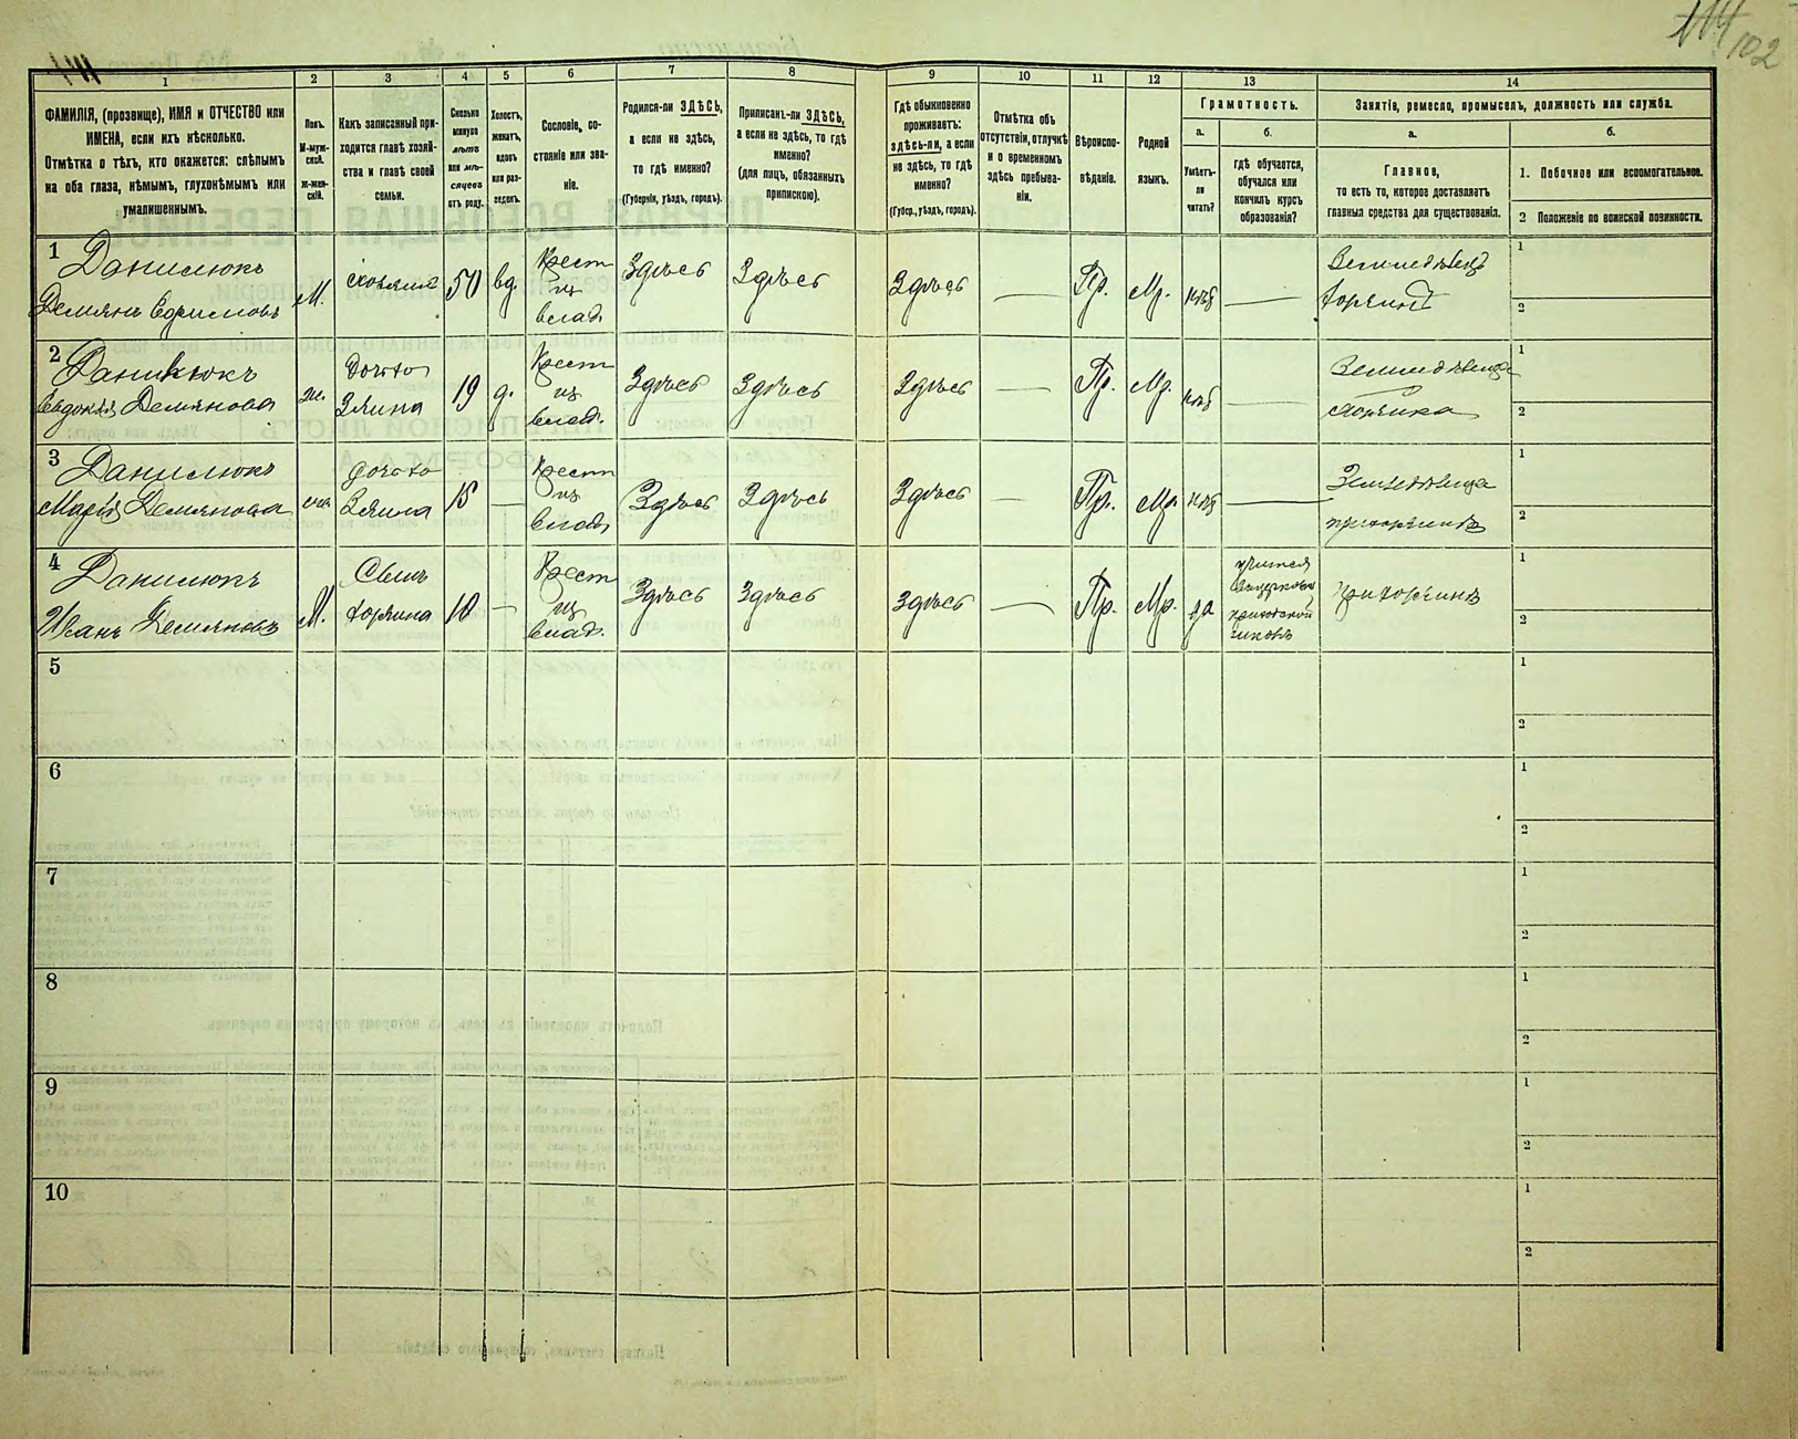 102
1 2 3 4 5 6 7 8 9 10 11 12 13 14
ФАМИЛІЯ, (прозвище), ИМЯ и ОТЧЕСТВО или
ИМЕНА, если ихъ нѣсколько.
Отмѣтка о тѣхъ, кто окажется: слѣпымъ
на оба глаза, нѣмымъ, глухонѣмымъ или
умалишеннымъ.
Полъ.
М-муж-
ской.
Ж-жен-
скій.
Какъ записанный при-
ходится главѣ хозяй-
ства и главѣ своей
семьи.
Сколько
минуло
лѣтъ
или мѣ-
сяцевъ
отъ роду.
Холостъ,
женатъ,
вдовъ
или раз-
веденъ.
Сословіе, со-
стояніе или зва-
ніе.
Родился-ли ЗДѢСЬ,
а если не здѣсь,
то гдѣ именно?
(Губернія, уѣздъ, городъ).
Приписанъ-ли ЗДѢСЬ,
а если не здѣсь, то гдѣ
именно?
(для лицъ, обязанныхъ
припискою).
Гдѣ обыкновенно
проживаетъ:
здѣсь-ли, а если
не здѣсь, то гдѣ
именно?
(Губер., уѣздъ, городъ).
Отмѣтка объ
отсутствіи, отлучкѣ
и о временномъ
здѣсь пребыва-
ніи.
Вѣроиспо-
вѣданіе.
Родной
языкъ.
Грамотность.
а. б.
Умѣетъ-
ли
читать?
гдѣ обучается,
обучался или
кончилъ курсъ
образованія?
Занятіе, ремесло, промыселъ, должность или служба.
а. б.
Главное,
то есть то, которое доставляетъ
главныя средства для существованія.
1. Побочное или вспомогательное.
2 Положеніе по воинской повинности.
1 Данилюкъ
Демьянъ
М. хозяинъ 50 вд.
Крест
из
влад.
Здѣсь Здѣсь Здѣсь — Пр. Мр. нѣтъ —
Земледѣлецъ
хозяинъ
1
2
2 Данилюкъ
Евдокія Демьянова
ж.
Дочь хо
зяина
19 д.
Крест
из
влад.
Здѣсь Здѣсь Здѣсь — Пр. Мр. нѣтъ —
1
2
3 Данилюкъ
Марія Демьянова
дочь хо
зяина
15 —
Крест
из
влад
Здѣсь Здѣсь Здѣсь — Пр. Мр. нѣтъ —
1
2
4 Данилюкъ
Иванъ Демьяновъ
М.
Сынъ
хозяина
10 —
Крест
из
влад.
Здѣсь Здѣсь Здѣсь — Пр. Мр. да
учится
приходской
1
2
5
1
2
6
1
2
7
1
2
8
1
2
9
1
2
10
1
2